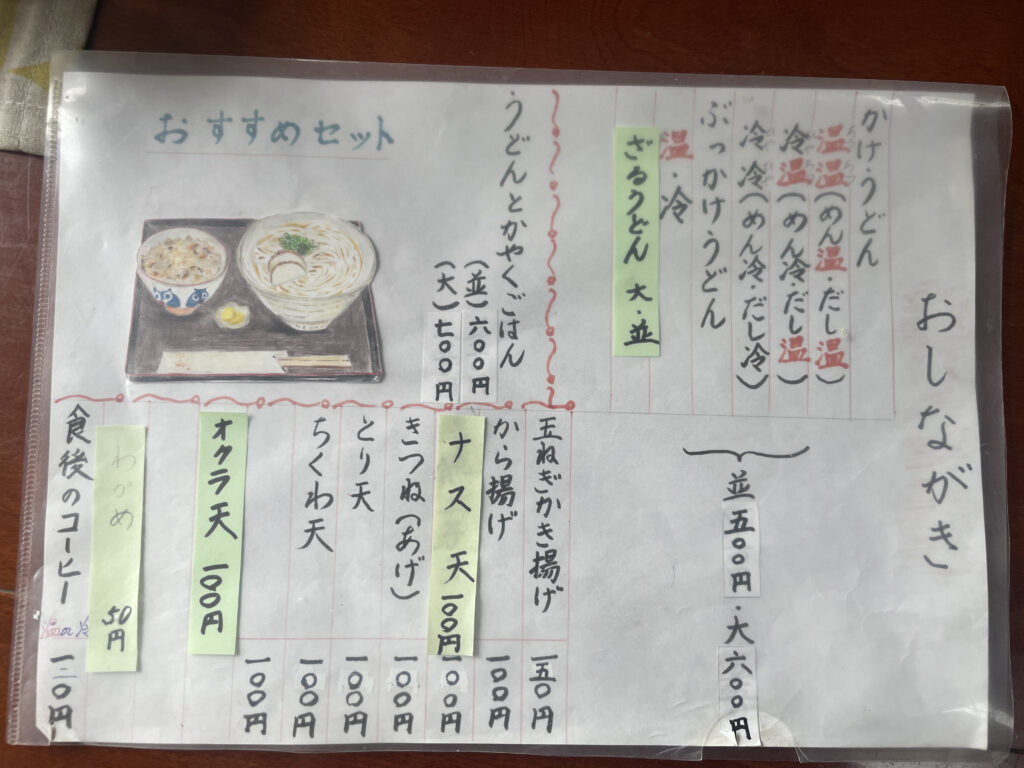 おしながき
かけ・うどん
温温(めん温・だし温)
冷温(めん冷・だし温)
冷冷(めん冷・だし冷)
ぶっかけうどん
温・冷
ざるうどん 大・並
並 五〇〇円・大 六〇〇円
おすすめセット
うどんとかやくごはん
(並)六〇〇円
(大)七〇〇円
玉ねぎかき揚げ 一五〇円
から揚げ 一〇〇円
ナス天 一〇〇円
一〇〇円
きつね(あげ) 一〇〇円
とり天 一〇〇円
ちくわ天 一〇〇円
一〇〇円
オクラ天 一〇〇円
わかめ 50円
食後のコーヒー 温or冷 一二〇円